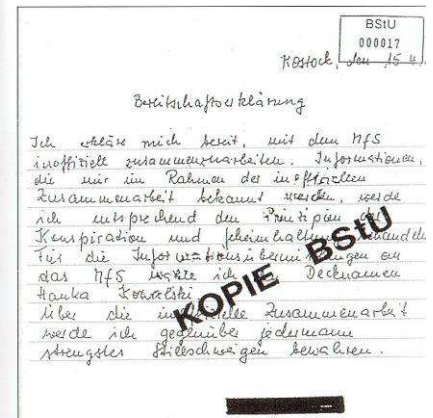 BStU
000017
Rostock, den 15.4.
Bereitschaftserklärung
Ich erkläre mich bereit, mit dem MfS
inoffiziell zusammenzuarbeiten. Informationen,
die mir im Rahmen der inoffiziellen
Zusammenarbeit bekannt werden, werde
ich entsprechend den Prinzipien der
Konspiration und Geheimhaltung behandeln
Für die Informationsübermittlungen an
das MfS wähle ich den Decknamen
Hanka Kowalski
Über die inoffizielle Zusammenarbeit
werde ich gegenüber jedermann
strengstes Stillschweigen bewahren.
KOPIE BStU